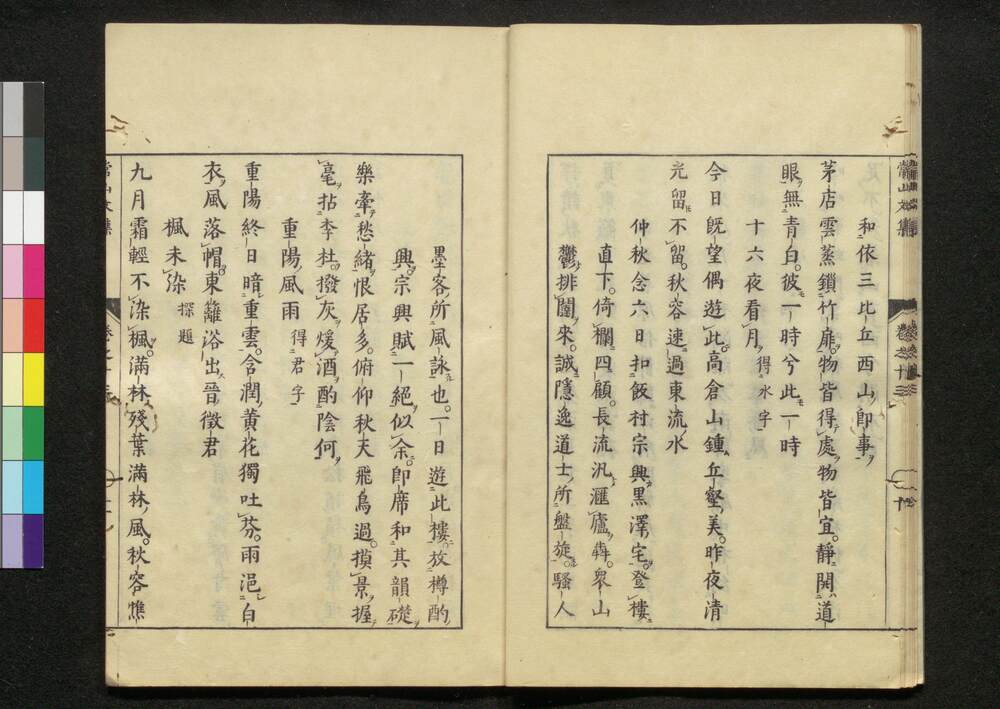 和依三比丘西山即事
茅店雲蒸鎖竹扉物皆得處物皆宜靜開道
眼無青白彼一時兮此一時
十六夜看月得水字
今日既望偶遊此高倉山鍾丘壑美昨夜清
光留不留秋容速過東流水
仲秋念六日扣飯村宗興黒澤宅登樓
直下倚欄四顧長流汎滙廬犇衆山
鬱排闥來誠隱逸道士所盤旋騷人
墨客所風詠也一日遊此樓放樽酌
興宗興賦一絕似余即席和其韻礎
樂牽愁緒恨居多俯仰秋天飛鳥過摸景握
毫拈李杜撥灰煖酒酌陰何
重陽風雨得君字
重陽終日暗重雲含潤黃花獨吐芬雨浥白
衣風落帽東籬浴出晉徵君
楓未染探題
九月霜輕不染楓滿林殘葉滿林風秋容憔
常山文集